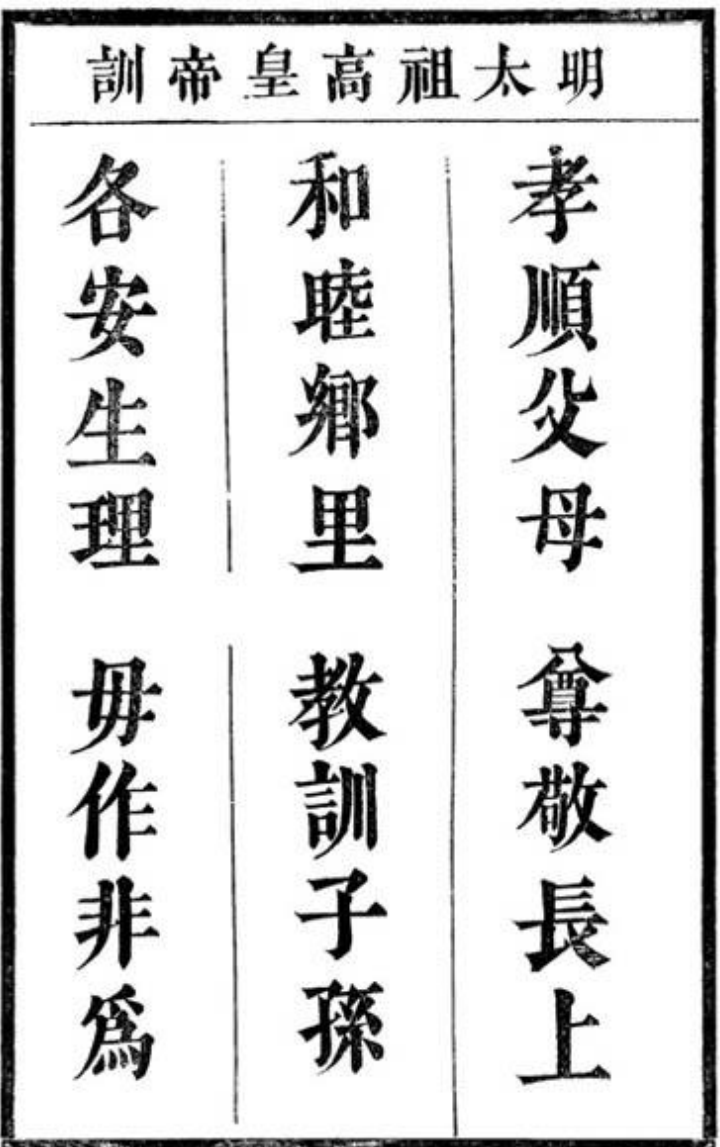 明太祖高皇帝訓
孝順父母 尊敬長上
和睦鄉里 教訓子孫
各安生理 毋作非爲